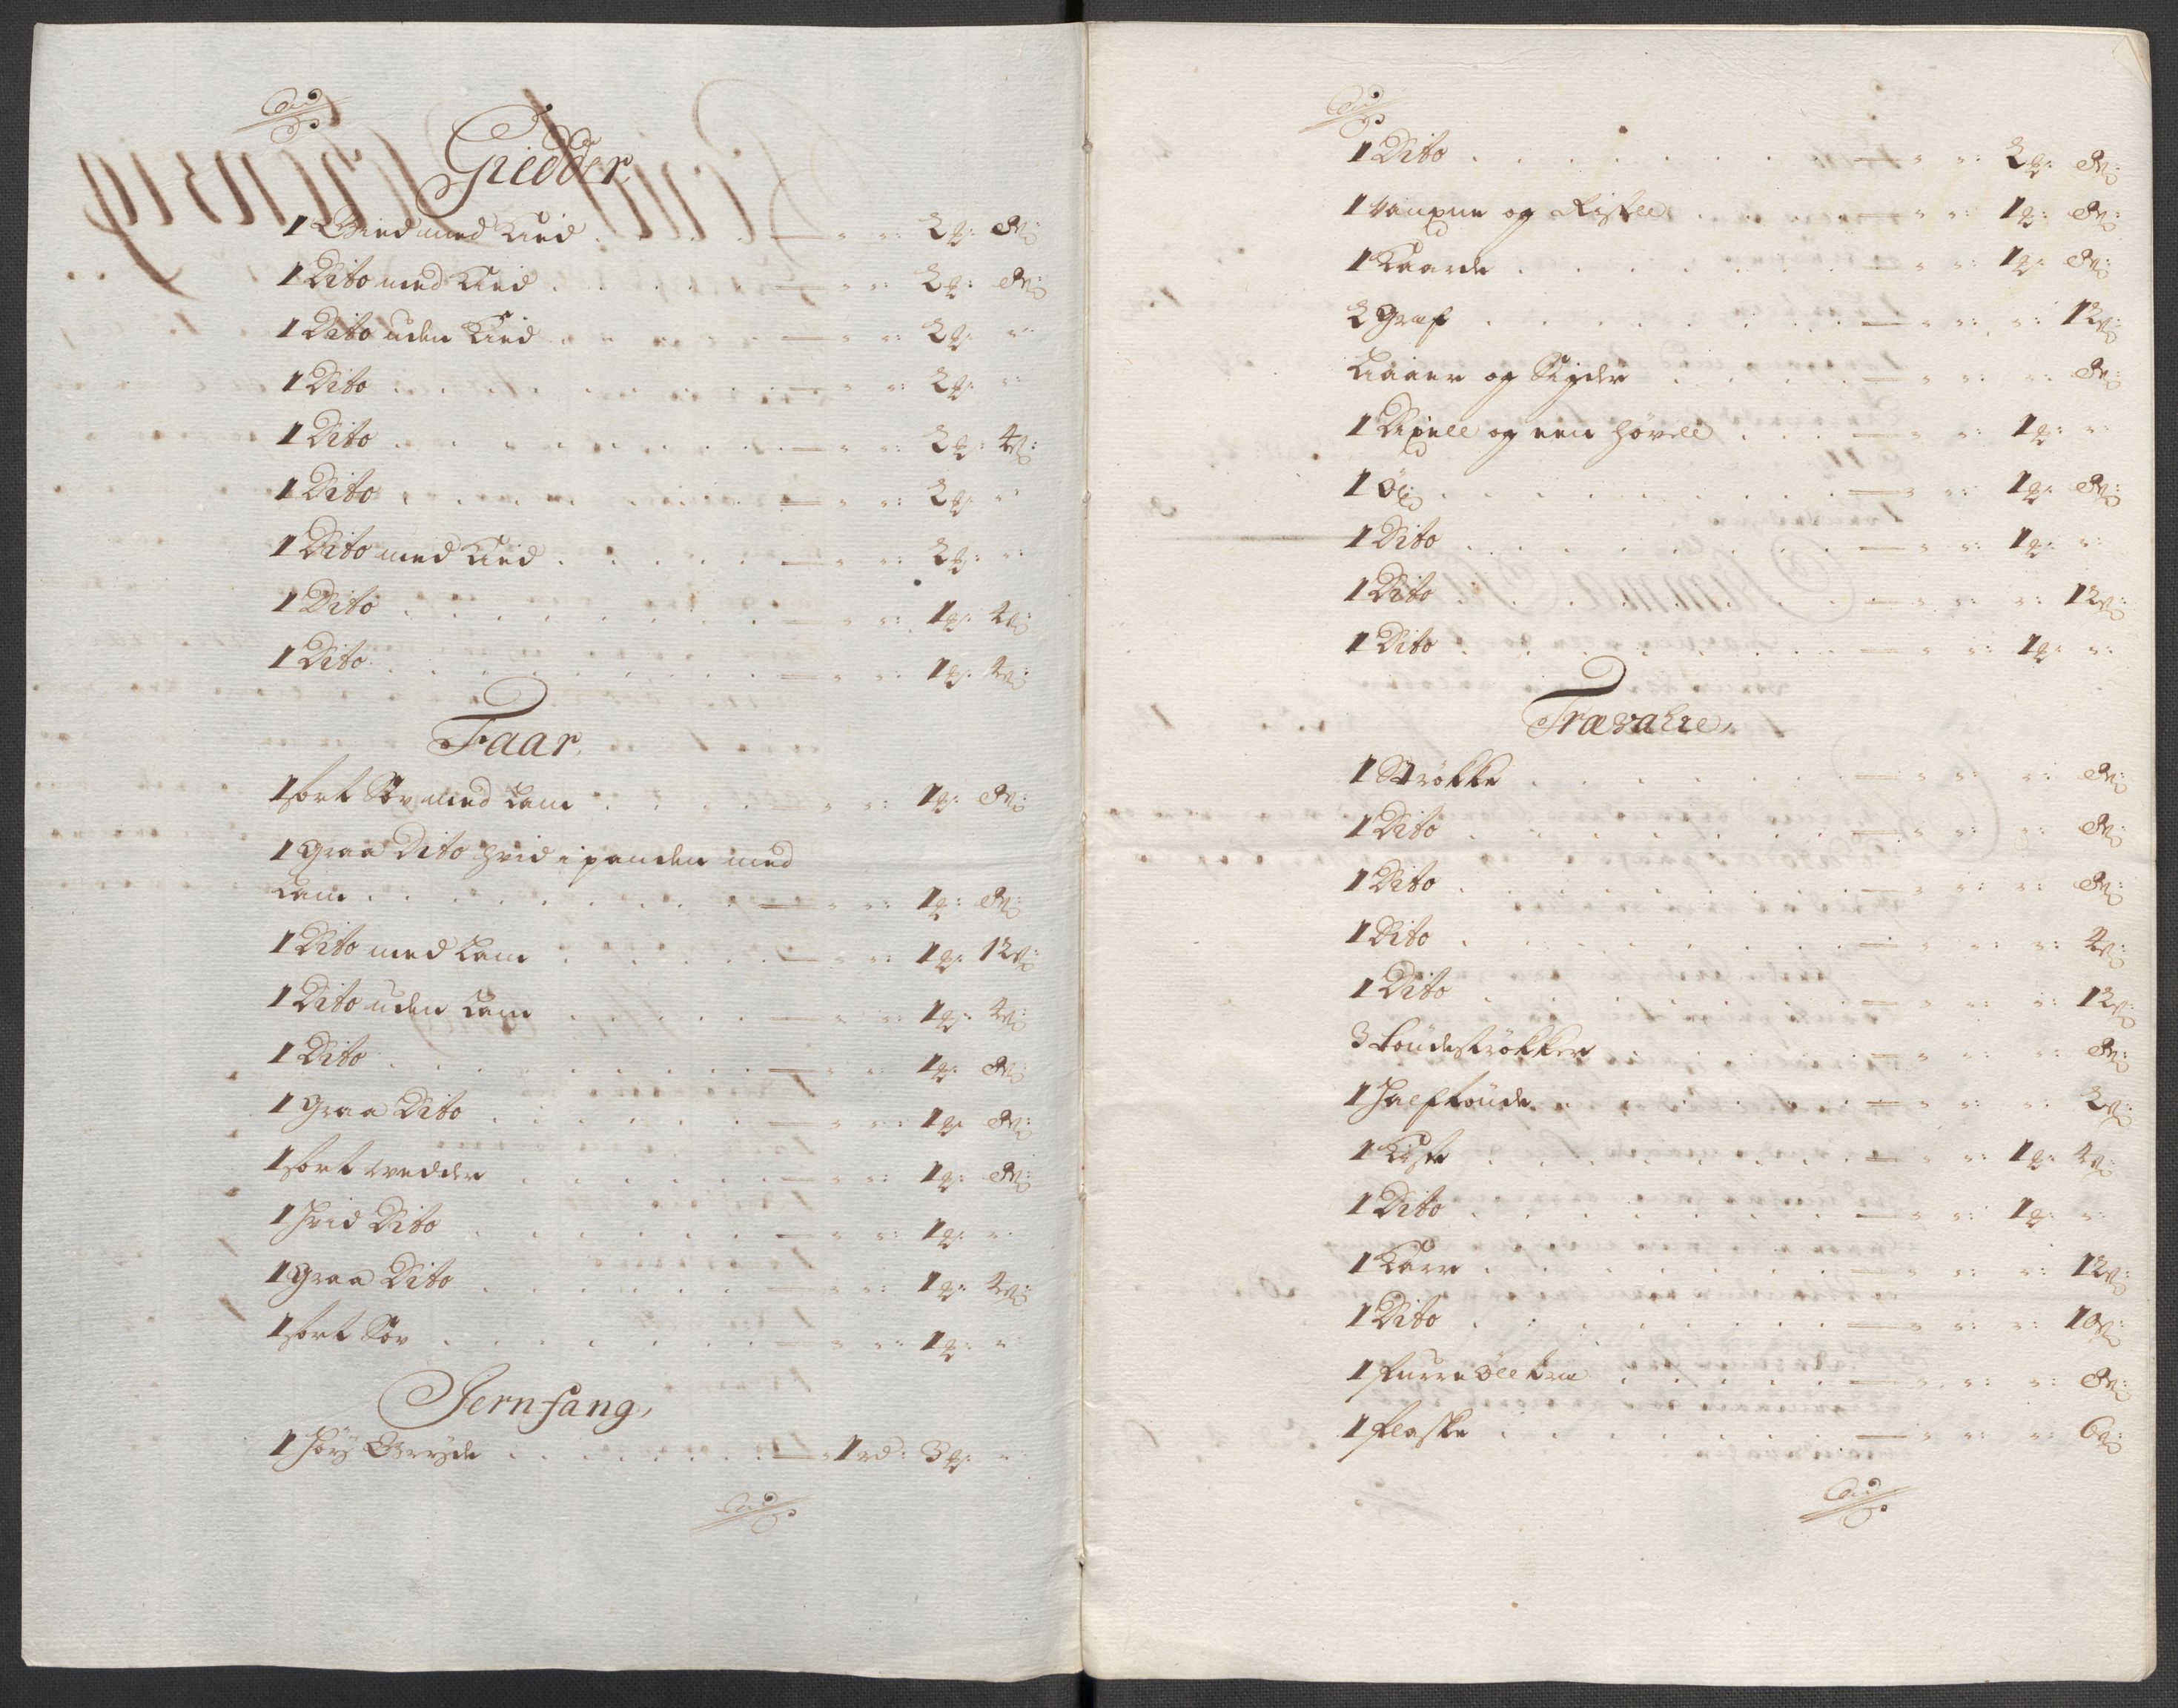 Giedder
1 Gied med Kied . . . . — " ": 2 ℔: 8 ß:
1 Dito med Kied . . . . — " ": 2 ℔: 8 ß:
1 Dito uden Kied . . . . — " ": 2 ℔: "
1 Dito . . . . — " ": 2 ℔: "
1 Dito . . . . — " ": 2 ℔: 4 ß:
1 Dito . . . . — " ": 2 ℔: "
1 Dito med Kied . . . . — " ": 2 ℔: "
1 Dito . . . . — " ": 1 ℔: 4 ß:
1 Dito . . . . — " ": 1 ℔: 4 ß:
Faar
1 sort Söv med Lam . . . . — " ": 1 ℔: 8 ß:
1 graa Dito hvid i panden med
Lam . . . . — " ": 1 ℔: 8 ß:
1 Dito med Lam . . . . — " ": 1 ℔: 12 ß:
1 Dito uden Lam . . . . — " ": 1 ℔: 4 ß:
1 Dito . . . . — " ": 1 ℔: 8 ß:
1 graa Dito . . . . — " ": 1 ℔: 8 ß:
1 sort vedder . . . . — " ": 1 ℔: 8 ß:
1 hvid Dito . . . . — " ": 1 ℔: "
1 graa Dito . . . . — " ": 1 ℔: 4 ß:
1 sort Söv . . . . — " ": 1 ℔: "
Jernfang
1 Gryde . . . . — " 1 rd: 3 ℔: "
1 Dito . . . . — " ": 2 ℔: 8 ß:
1 og Ristel . . . . — " ": 1 ℔: 8 ß:
1 Kaarde . . . . — " ": 1 ℔: 8 ß:
2 græf . . . . — " ": ": 12 ß:
Liaaer og Sigder . . . . — " ": ": 8 ß:
1 Dixell og een hövell . . . . — " ": 1 ℔: "
1 Öx . . . . — " ": 1 ℔: 8 ß:
1 Dito . . . . — " ": 1 ℔: "
1 Dito . . . . — " ": ": 12 ß:
1 Dito . . . . — " ": 1 ℔: "
Trævahre
1 Strökke . . . . — " ": ": 8 ß:
1 Dito . . . . — " ": ": 8 ß:
1 Dito . . . . — " ": ": 8 ß:
1 Dito . . . . — " ": ": 4 ß:
1 Dito . . . . — " ": ": 12 ß:
3 boüdströkker . . . . — " ": ": 8 ß:
1 Half toünde . . . . — " ": ": 2 ß:
1 Kiste . . . . — " ": 1 ℔: 4 ß:
1 Dito . . . . — " ": 1 ℔: "
1 Karr . . . . — " ": ": 12 ß:
1 Dito . . . . — " ": ": 10 ß:
1 furre öll træ . . . . — " ": ": 8 ß:
1 flaske . . . . — " ": ": 6 ß: